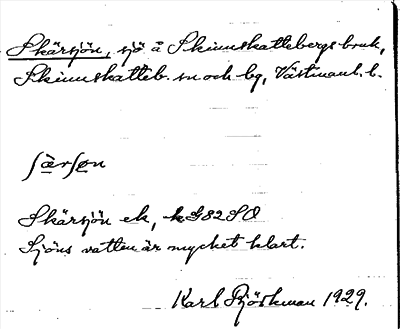 Skärsjön, sjö å Skinnskattebergs bruk,
Skinnskatteb. sn och bg, Västmanl. l.
ʃæ̀rʃøn
Skärsjön ek, k G82SO
Sjöns vatten är mycket klart.
Karl Björkman 1929.